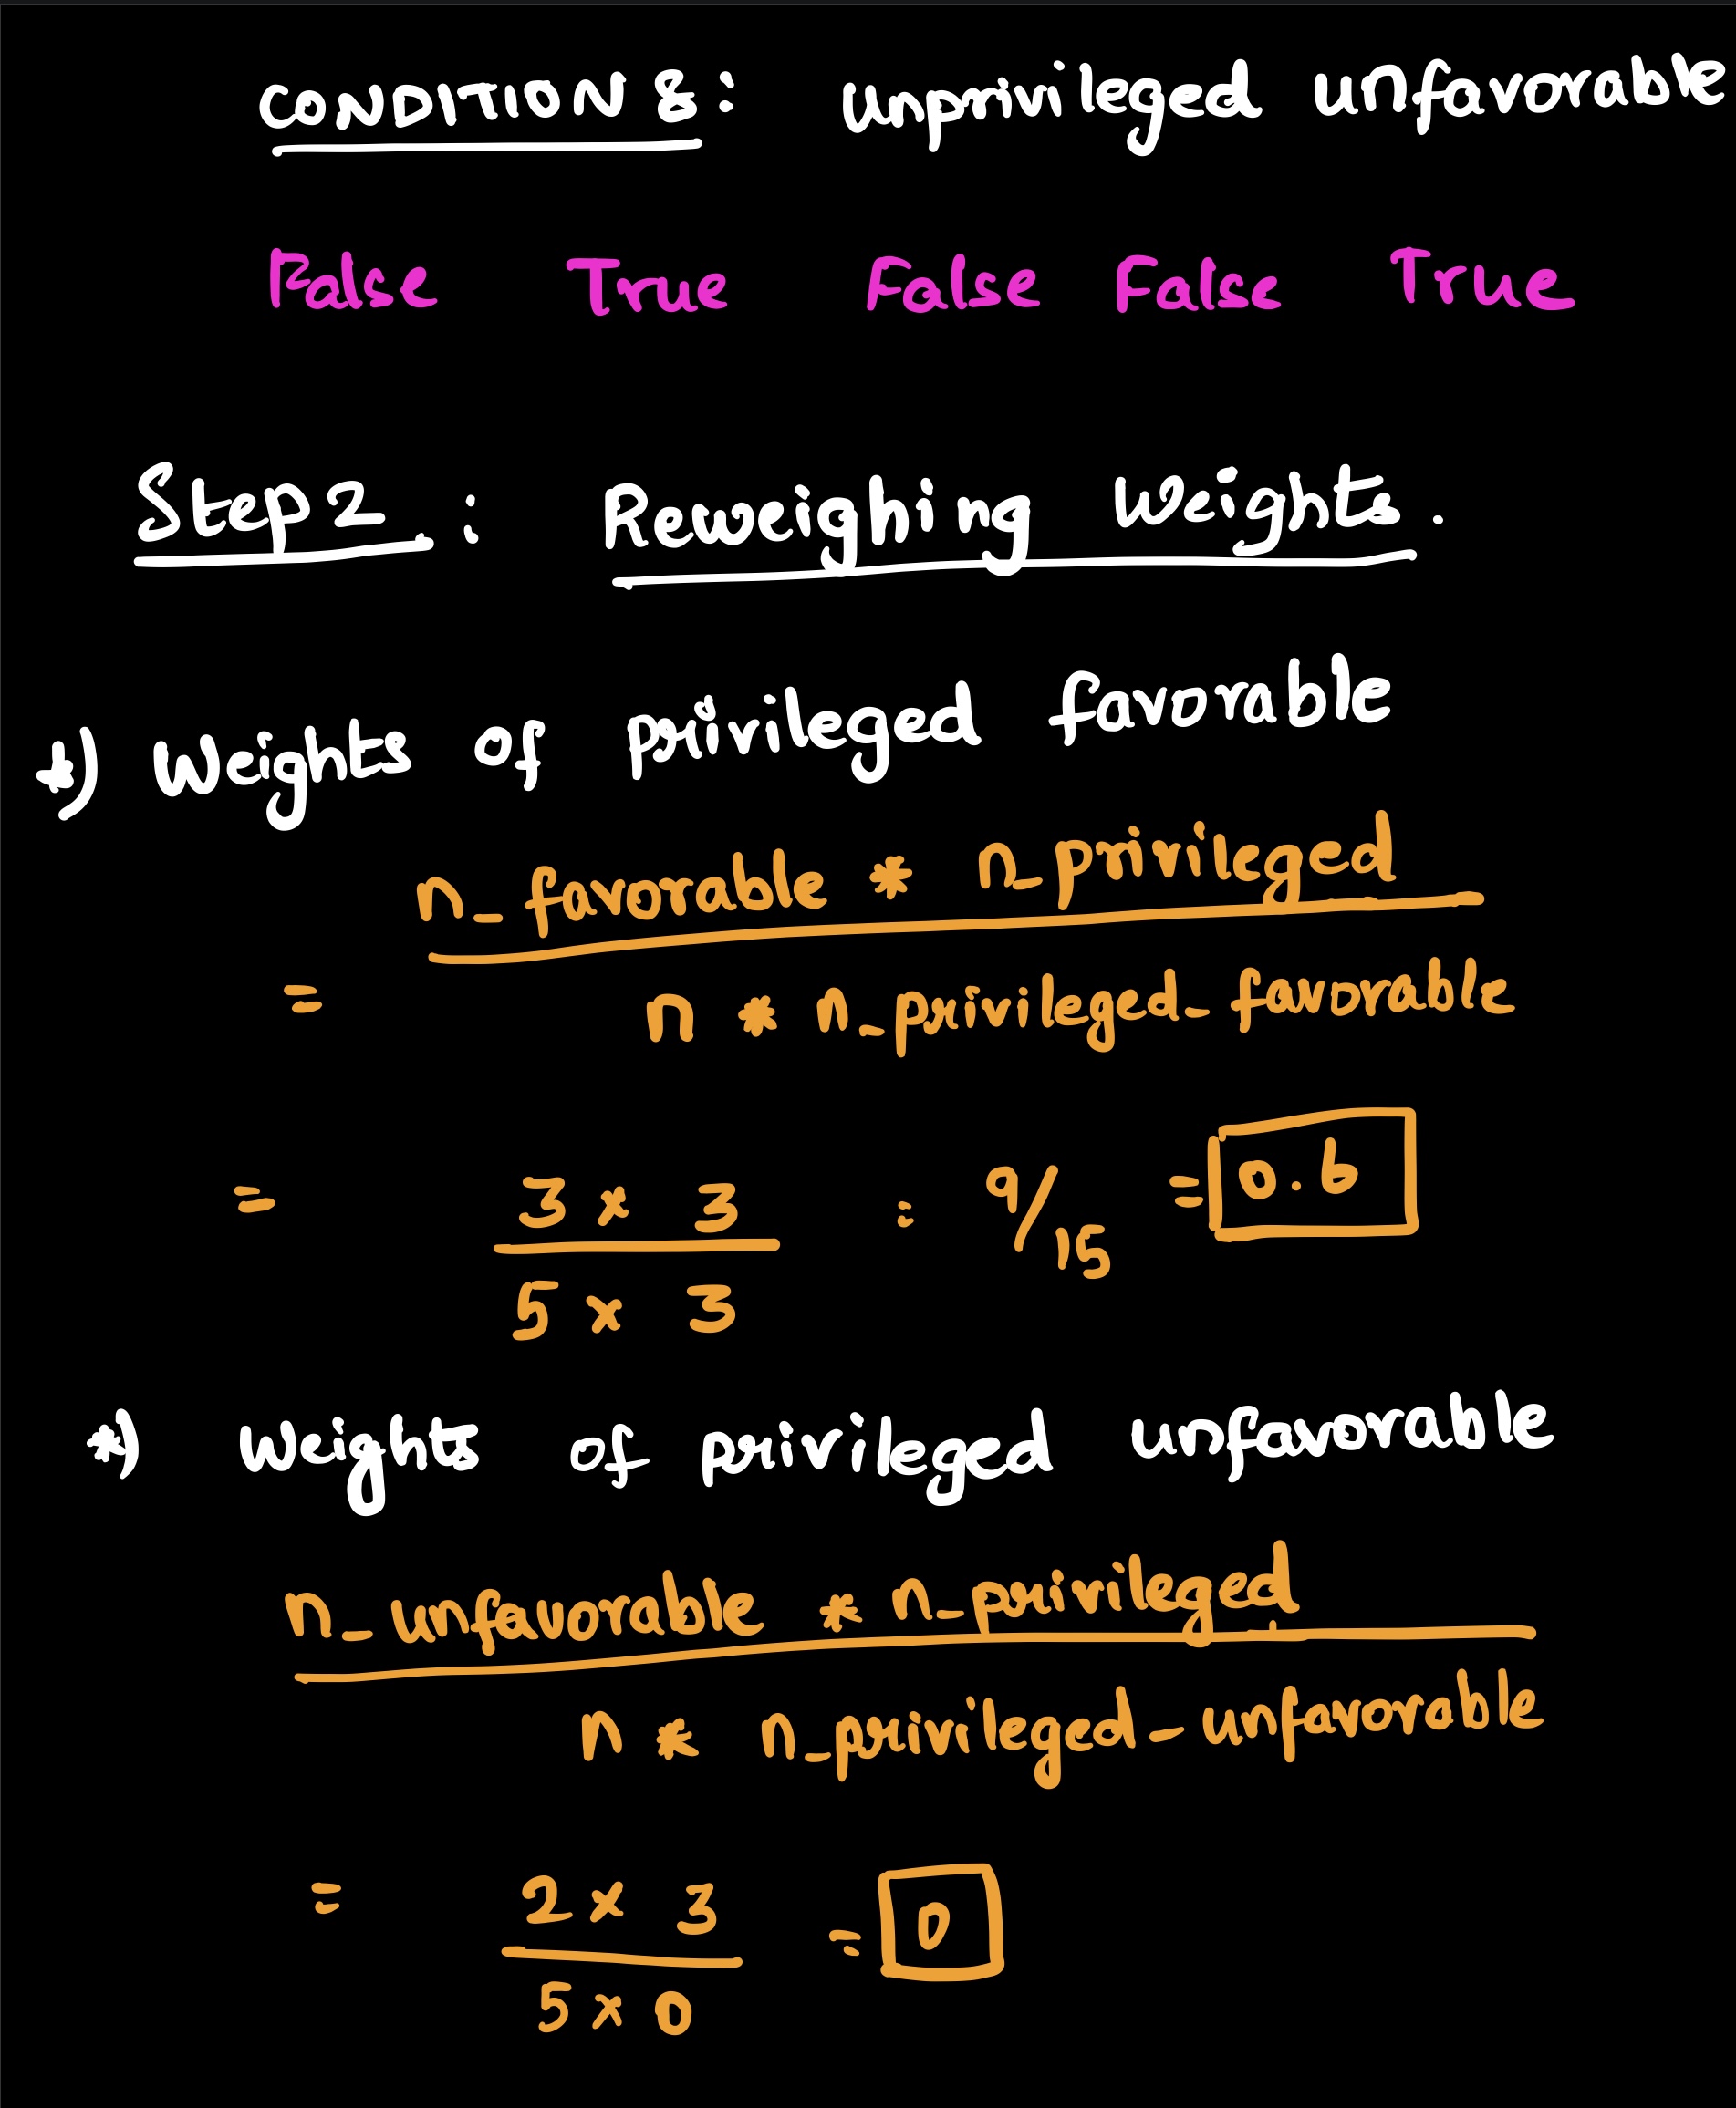 CONDITION 8: Unprivileged unfavorable
False True False False True
Step 2 : Reweighing Weights.
*) Weights of privileged favorable
n_favorable * n_privileged
= n * n_privileged_favorable
= 3 x 3 = 9/15 = 0.6
5 x 3
*) Weights of privileged unfavorable
n_unfavorable * n_privileged
n * n_privileged_unfavorable
= 2 x 3 = 0
5 x 0